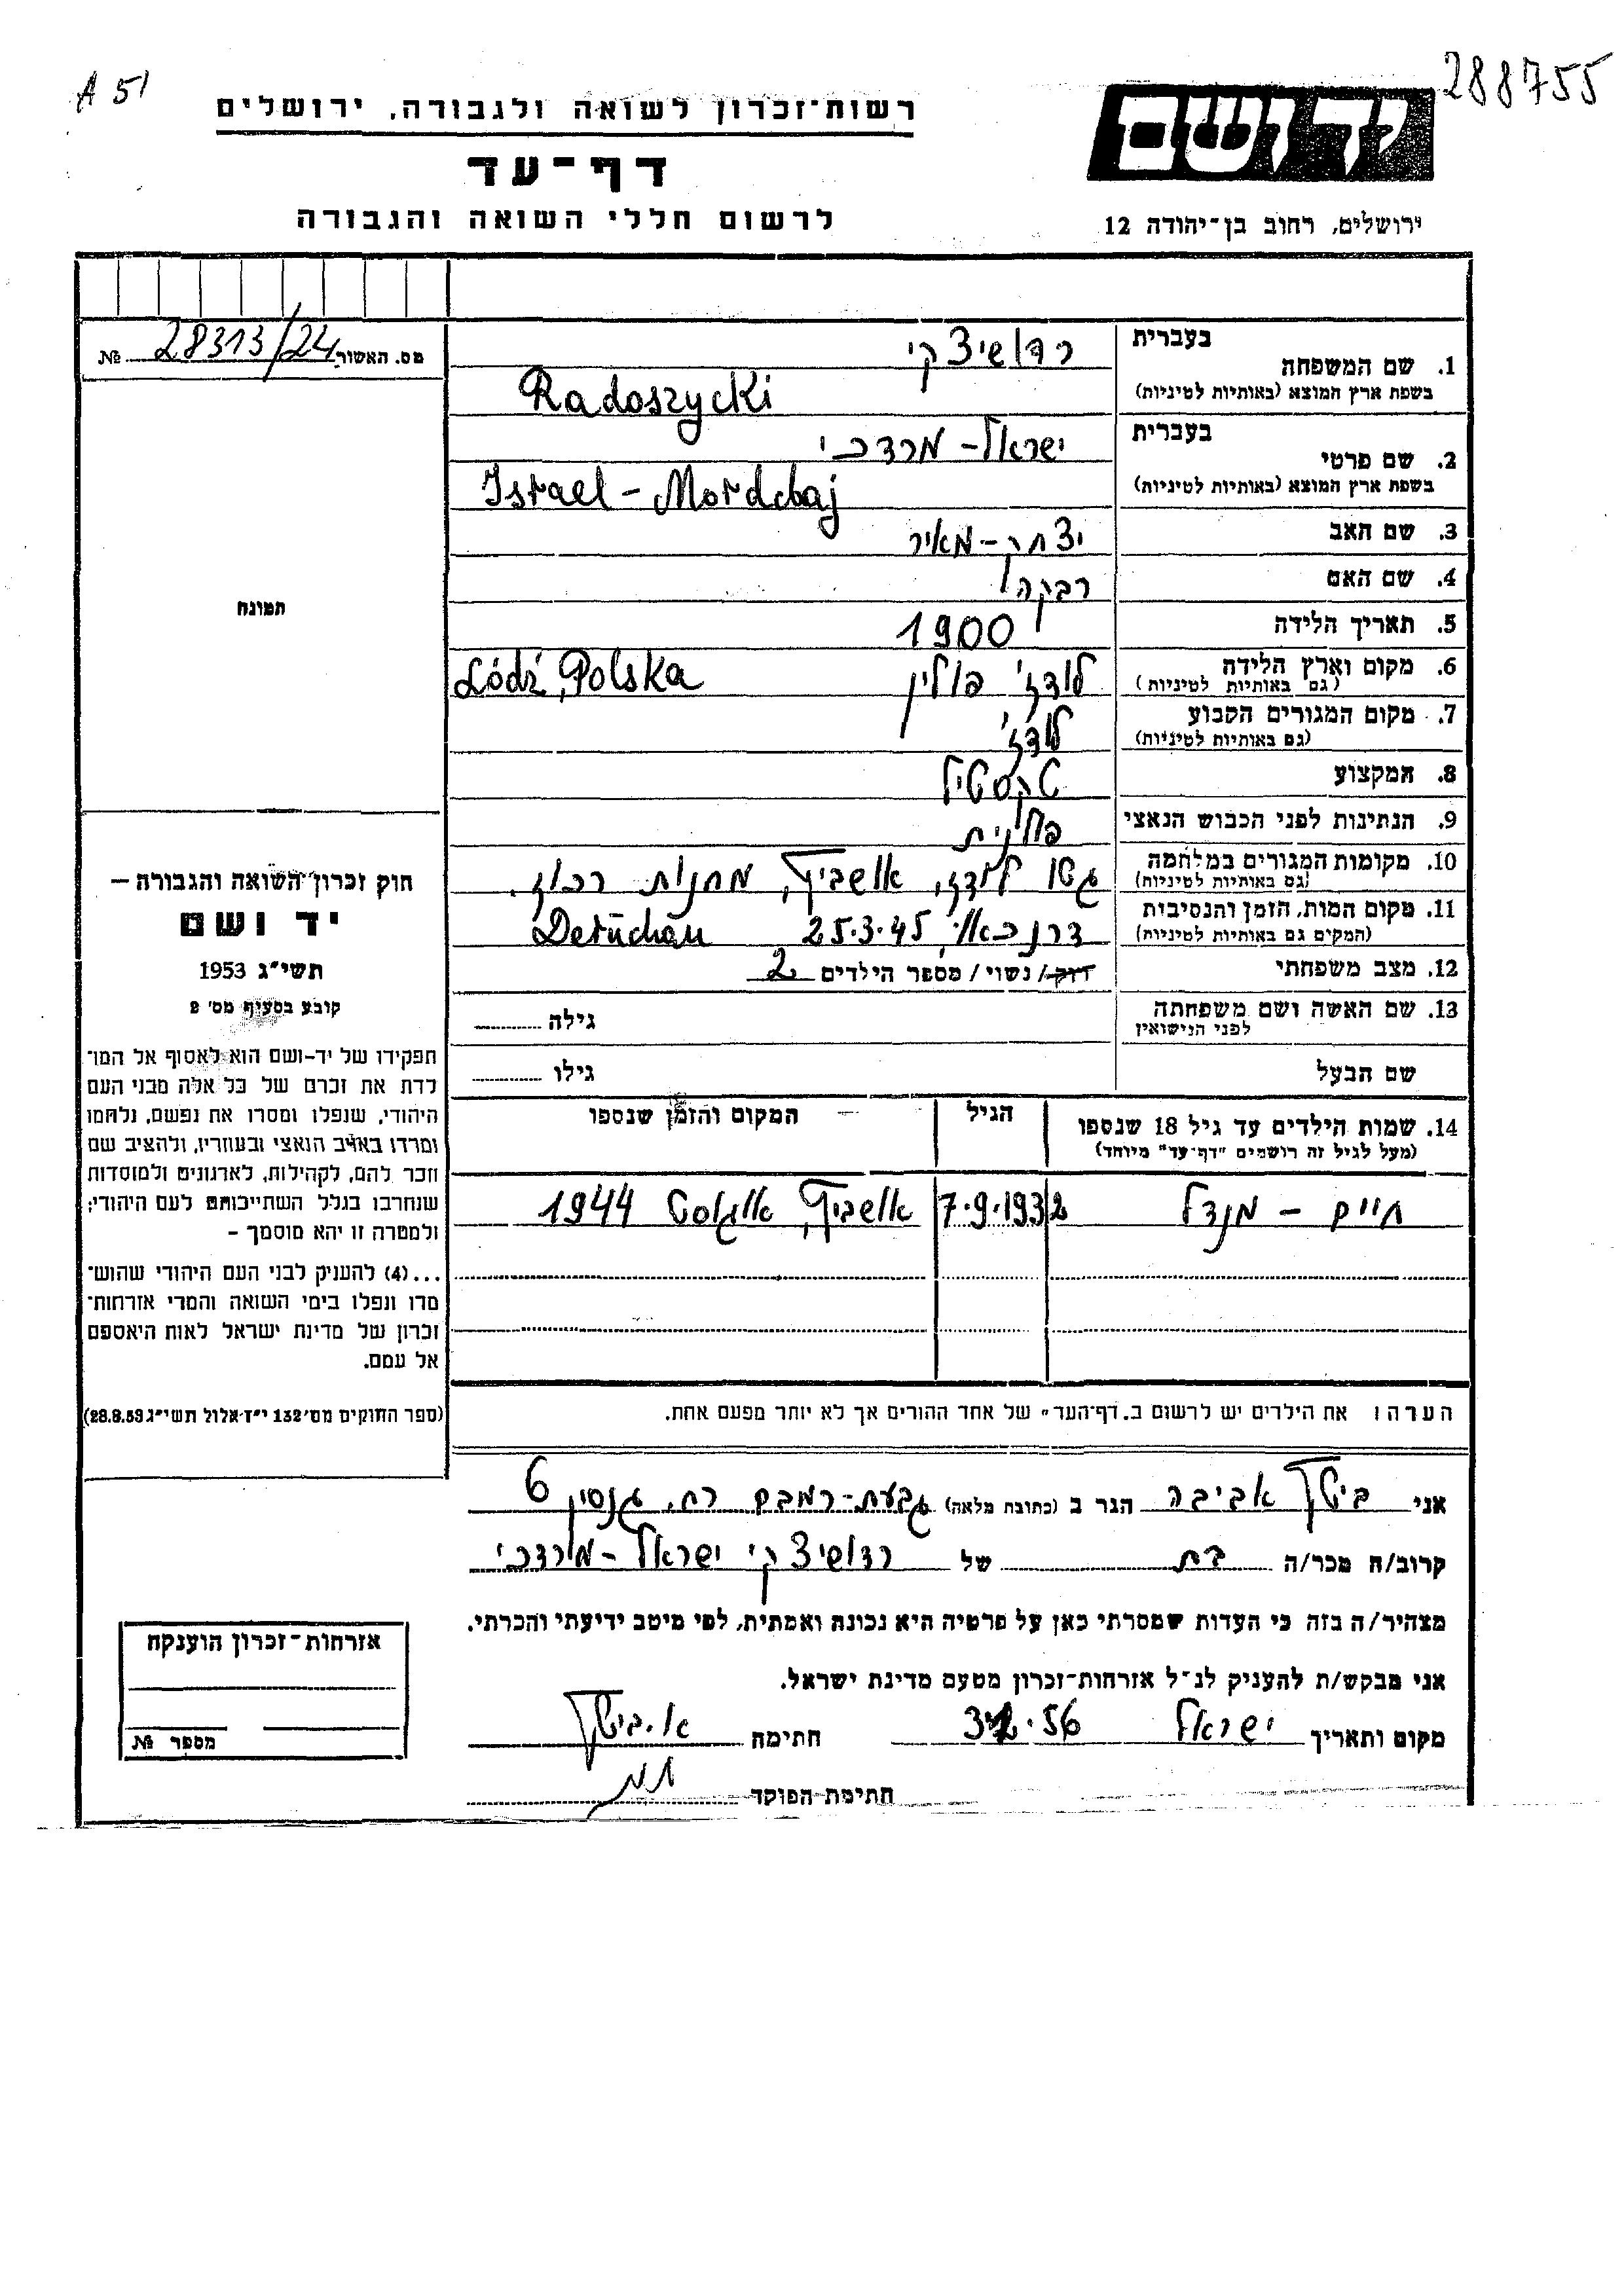 A 51
288755
רשות־זכרון לשואה ולגבורה, ירושלים
דף־עד
לרשום חללי השואה והגבורה
יד ושם
ירושלים, רחוב בן־יהודה 12
מס. האשור 28313/24 №
תמונה
בעברית
1. שם המשפחה
בשפת ארץ המוצא (באותיות לטיניות)
רדושיצקי
Radoszycki
בעברית
2. שם פרטי
בשפת ארץ המוצא (באותיות לטיניות)
ישראל - מרדכי
Israel - Mordchaj
3. שם האב יצחק - מאיר
4. שם האם רבקה
5. תאריך הלידה 1900
6. מקום וארץ הלידה לודז' פולין Łódź, Polska
(גם באותיות לטיניות)
7. מקום המגורים הקבוע לודז'
(גם באותיות לטיניות)
8. המקצוע טקסטיל
9. הנתינות לפני הכבוש הנאצי פולנית
10. מקומות המגורים במלחמה גטו לודז', אושביץ, מחנות רכוז.
(גם באותיות לטיניות)
11. מקום המות, הזמן והנסיבות 25.3.45
(המקים גם באותיות לטיניות)
12. מצב משפחתי רוק/ נשוי / מספר הילדים 2
13. שם האשה ושם משפחתה גילה
לפני הנישואין
שם הבעל גילו
14. שמות הילדים עד גיל 18 שנספו הגיל המקום והזמן שנספו
(מעל לגיל זה רושמים "דף־עד" מיוחד)
חיים - מנדל 7.9.1932 אושביץ, אוגוסט 1944
הערה ו את הילדים יש לרשום ב.דף־העד״ של אחד ההורים אך לא יותר מפעם אחת.
חוק זכרון השואה והגבורה —
יד ושם
תשי״ג 1953
קובע בסעיף מס׳ 2
תפקידו של יד-ושם הוא לאסוף אל המו־
לדת את זכרם של כל אלה מבני העם
היהודי, שנפלו ומסרו את נפשם, נלחמו
ומרדו באויב הנאצי ובעוזריו, ולהציב שם
וזכר להם, לקהילות, לארגונים ולמוסדות
שנחרבו בגלל השתייכותם לעם היהודי;
ולמטרה זו יהא מוסמך -
...(4) להעניק לבני העם היהודי שהוש־
מדו ונפלו בימי השואה והמרי אזרחות־
זכרון של מדינת ישראל לאות היאספם
אל עמם.
(ספר החוקים מס׳ 132 י״ז אלול תשי״ג 28.8.53)
אני ביטן אביבה הגר ב (כתובת מלאה) גבעת-רמבם רח. גנסין 6
קרוב/ה מכר/ה בת של רדושיצקי ישראל - מורדכי
מצהיר/ה בזה כי העדות שמסרתי כאן על פרטיה היא נכונה ואמתית, לפי מיטב ידיעתי והכרתי.
אני מבקש/ת להעניק לנ״ל אזרחות־זכרון מטעם מדינת ישראל.
מקום ותאריך ישראל חתימה א. ביטן
חתימת הפוקד
אזרחות־זכרון הוענקה
מספר №